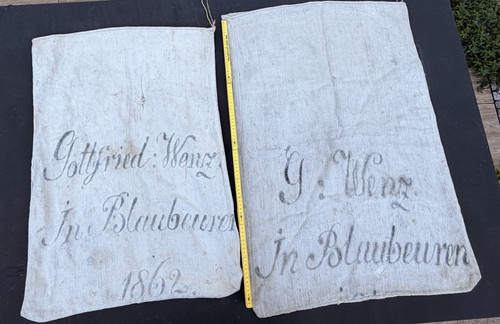 Gottfried : Wenz.
In Blaubeuren
1862.
G : Wenz
In Blaubeuren